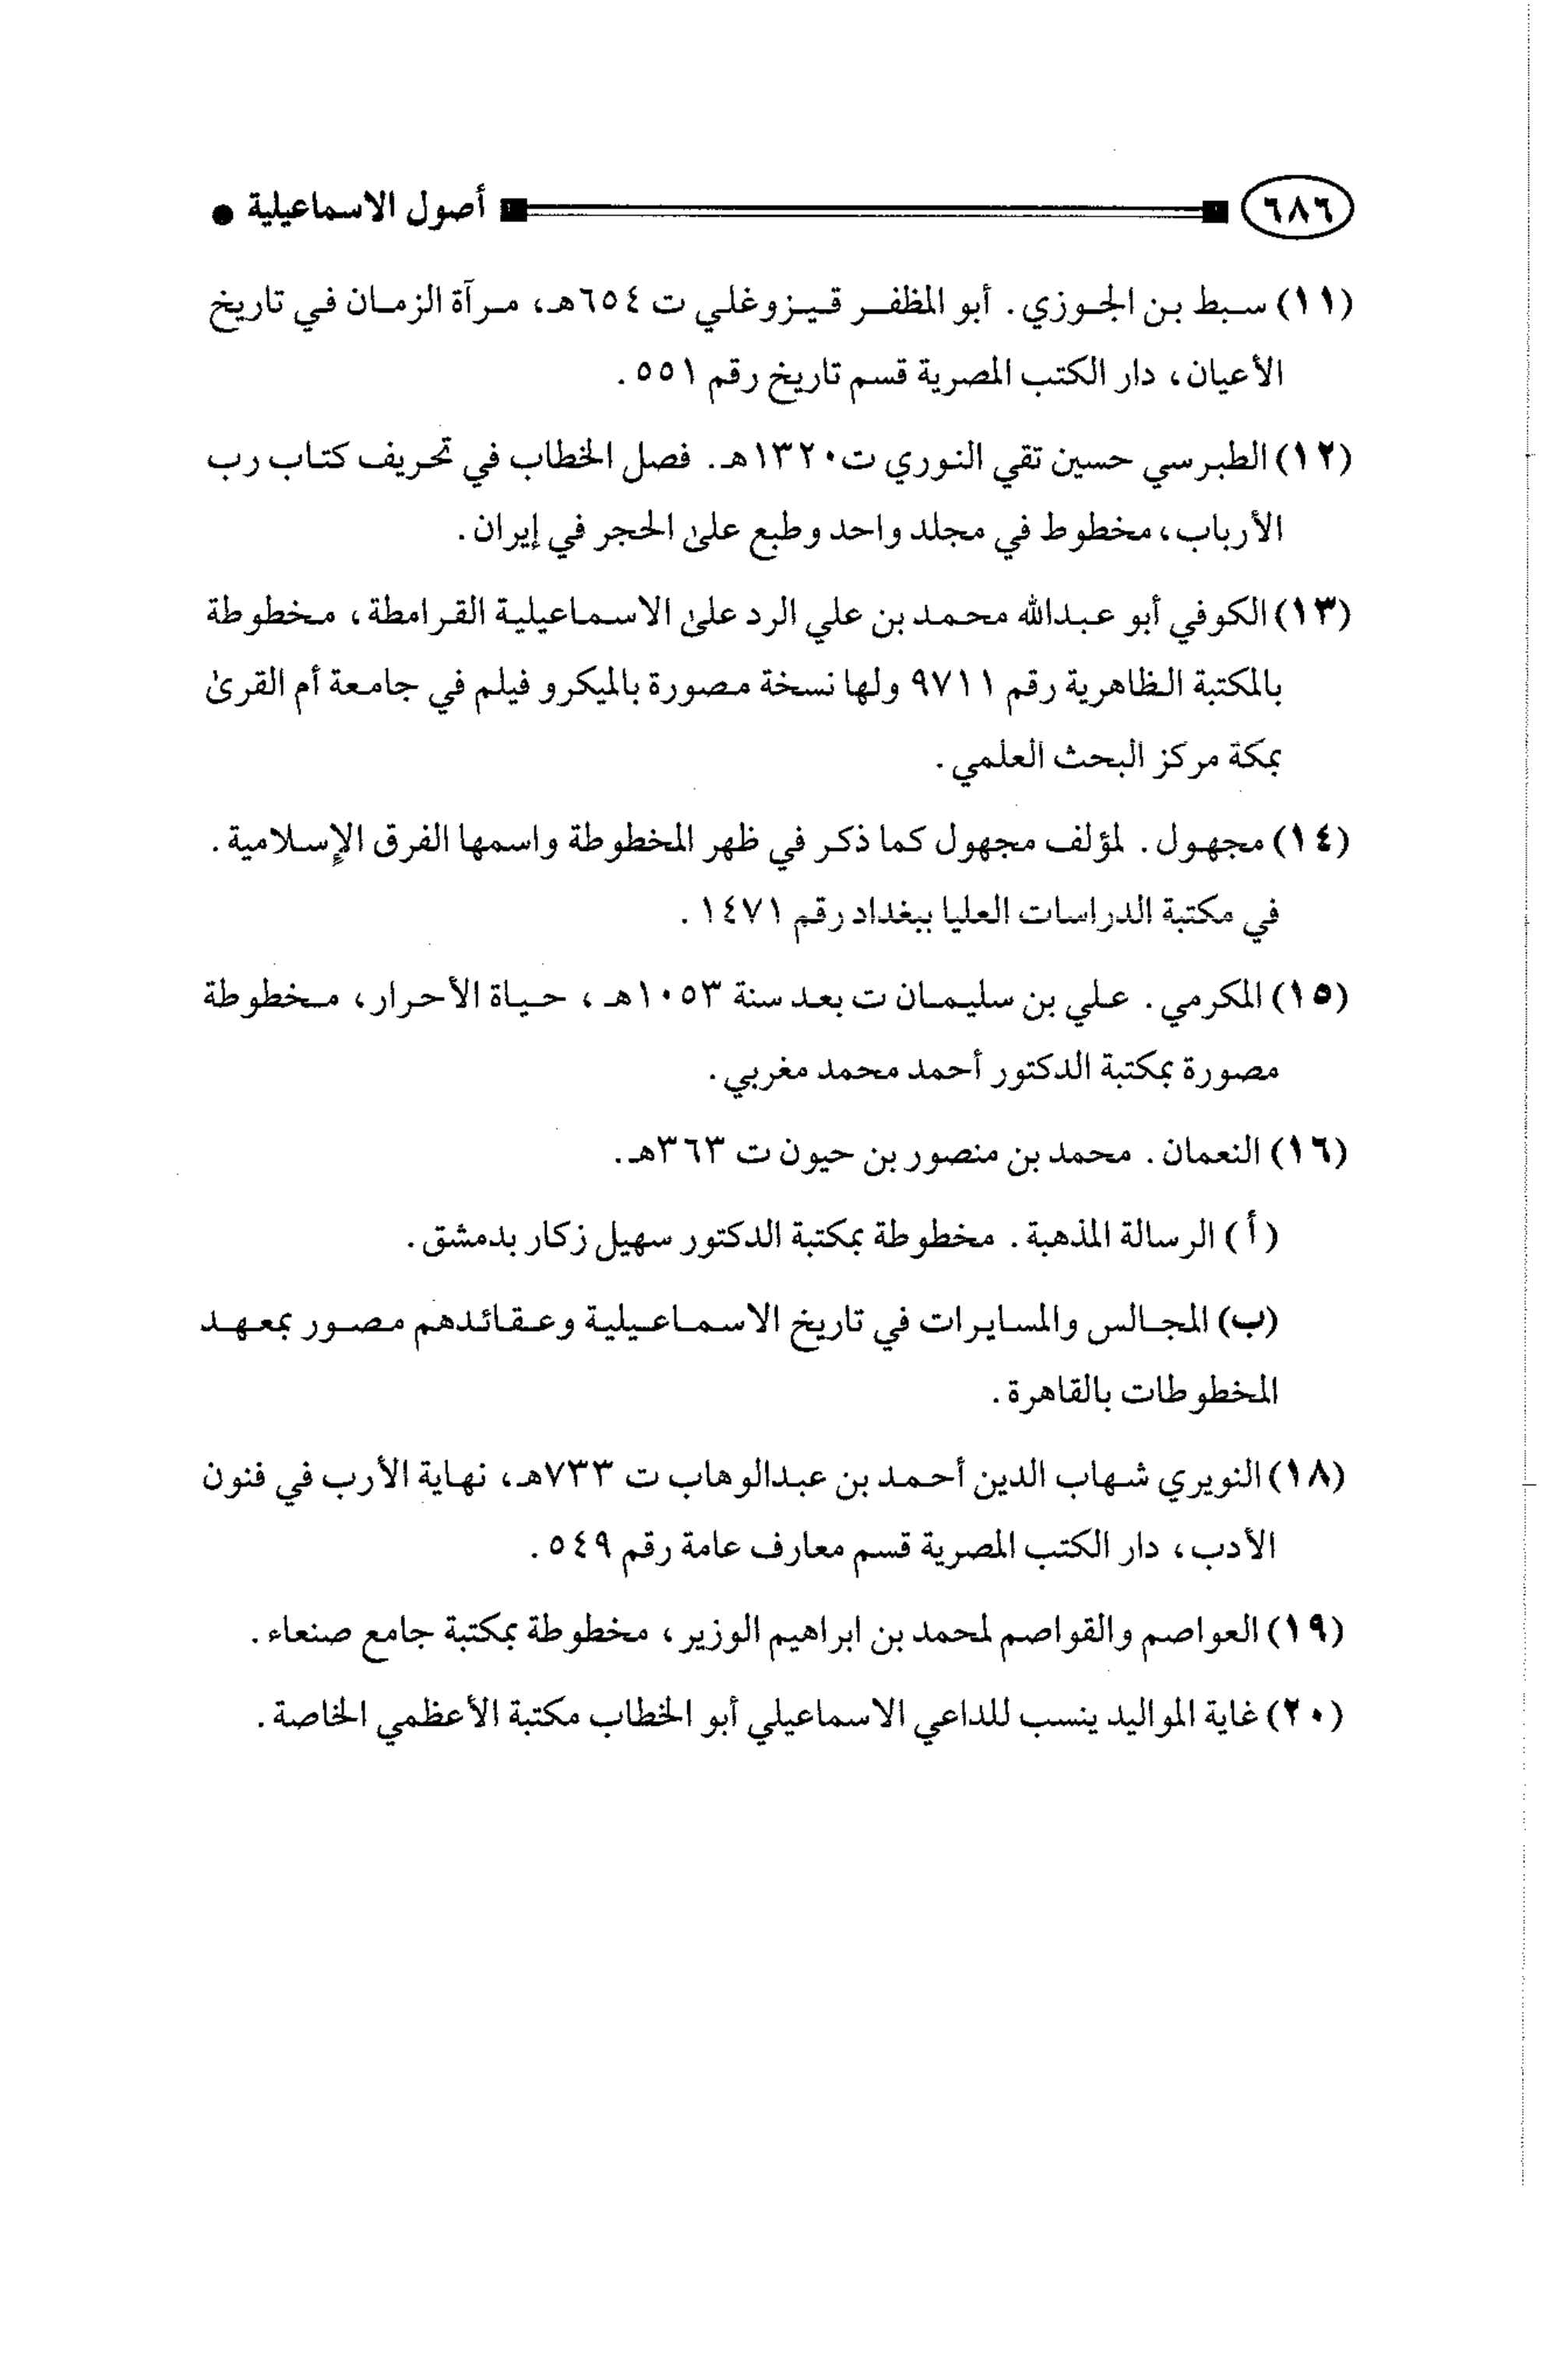 ٦٨٦ أصول الاسماعيلية ●
(١١) سبط بن الجوزي. أبو المظفر قيزوغلي ت ٦٥٤هـ، مرآة الزمان في تاريخ
الأعيان، دار الكتب المصرية قسم تاريخ رقم ٥٥١.
(١٢) الطبرسي حسين تقي النوري ت١٣٢٠هـ. فصل الخطاب في تحريف كتاب رب
الأرباب، مخطوط في مجلد واحد وطبع على الحجر في إيران.
(١٣) الكوفي أبو عبدالله محمد بن علي الرد على الاسماعيلية القرامطة، مخطوطة
بالمكتبة الظاهرية رقم ٩٧١١ ولها نسخة مصورة بالميكرو فيلم في جامعة أم القرى
بمكة مركز البحث العلمي.
(١٤) مجهول. لمؤلف مجهول كما ذكر في ظهر المخطوطة واسمها الفرق الإسلامية.
في مكتبة الدراسات العليا ببغداد رقم ١٤٧١.
(١٥) المكرمي. علي بن سليمان ت بعد سنة ١٠٥٣هـ، حياة الأحرار، مخطوطة
مصورة بمكتبة الدكتور أحمد محمد مغربي.
(١٦) النعمان. محمد بن منصور بن حيون ت ٣٦٣هـ.
(أ) الرسالة المذهبة. مخطوطة بمكتبة الدكتور سهيل زكار بدمشق.
(ب) المجالس والمسايرات في تاريخ الاسماعيلية وعقائدهم مصور بمعهد
المخطوطات بالقاهرة.
(١٨) النويري شهاب الدين أحمد بن عبدالوهاب ت ٧٣٣هـ، نهاية الأرب في فنون
الأدب، دار الكتب المصرية قسم معارف عامة رقم ٥٤٩.
(١٩) العواصم والقواصم لمحمد بن ابراهيم الوزير، مخطوطة بمكتبة جامع صنعاء.
(٢٠) غاية المواليد ينسب للداعي الاسماعيلي أبو الخطاب مكتبة الأعظمي الخاصة.